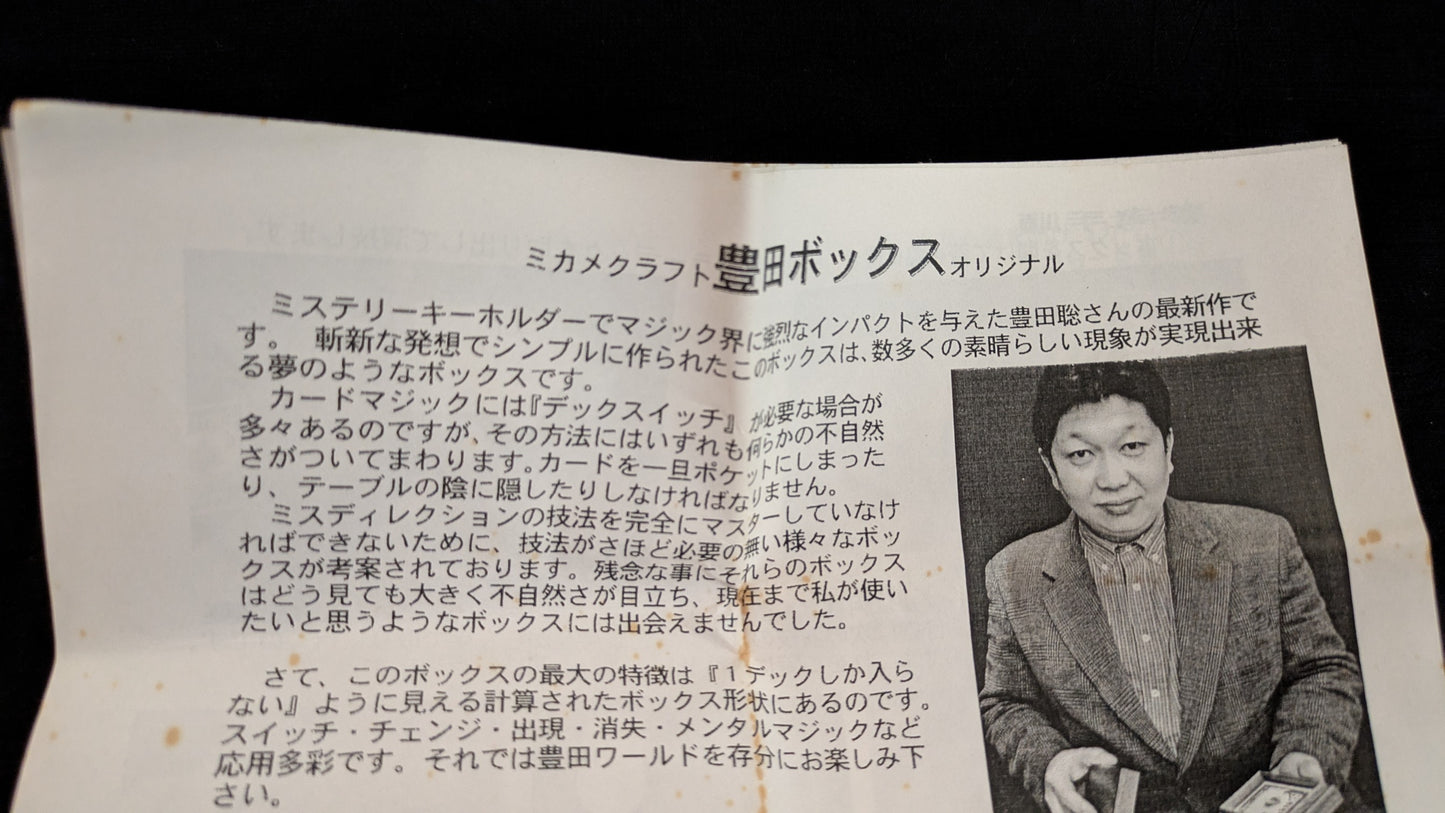 ミカメクラフト豊田ボックスオリジナル
ミステリーキーホルダーでマジック界に強烈なインパクトを与えた豊田聡さんの最新作で
す。 斬新な発想でシンプルに作られたこのボックスは、数多くの素晴らしい現象が実現出来
る夢のようなボックスです。
カードマジックには『デックスイッチ』が必要な場合が
多々あるのですが、その方法にはいずれも何らかの不自然
さがついてまわります。カードを一旦ポケットにしまった
り、テーブルの陰に隠したりしなければなりません。
ミスディレクションの技法を完全にマスターしていなけ
ればできないために、技法がさほど必要の無い様々なボッ
クスが考案されております。残念な事にそれらのボックス
はどう見ても大きく不自然さが目立ち、現在まで私が使い
たいと思うようなボックスには出会えませんでした。
さて、このボックスの最大の特徴は『１デックしか入ら
ない』ように見える計算されたボックス形状にあるのです。
スイッチ・チェンジ・出現・消失・メンタルマジックなど
応用多彩です。それでは豊田ワールドを存分にお楽しみ下
さい。